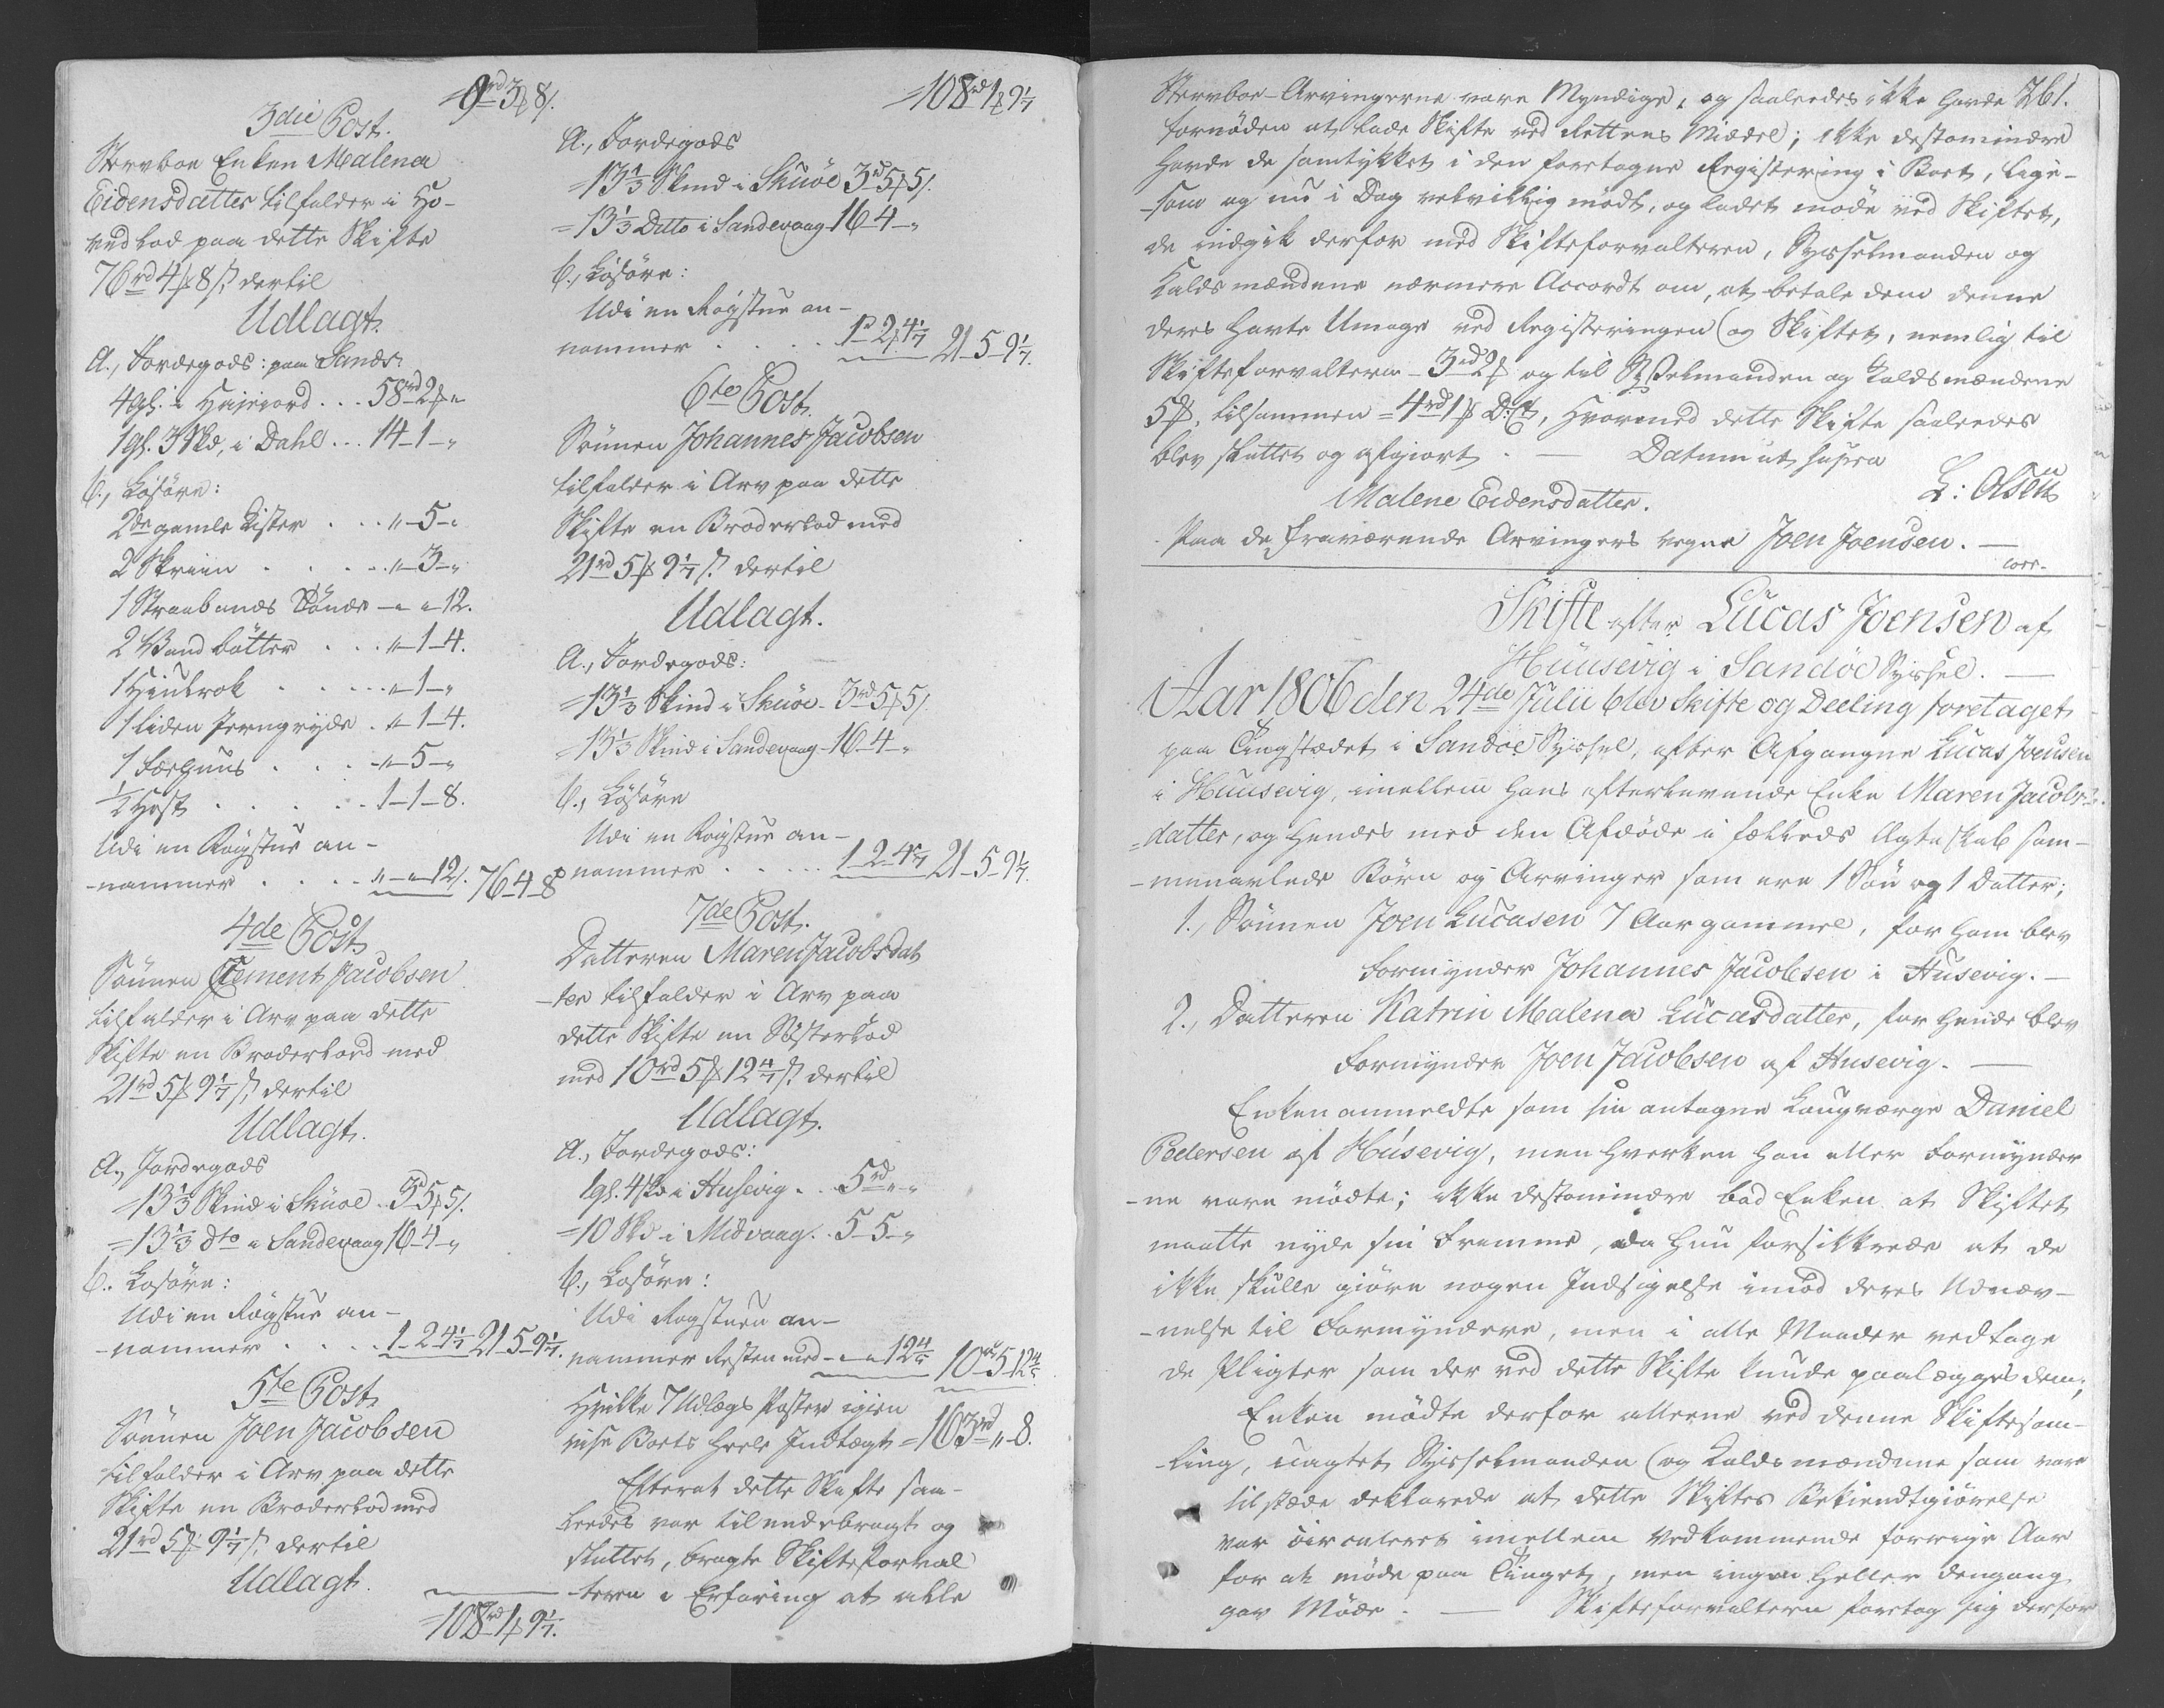 9rd 3ß 8/.
3die Post.
Sterboe Enken Malena
Eidensdatter tilfalder i Ho-
vedlod paa dette Skifte
76rd 4ß 8/. dertil
Udlagt.
A., Jordegods: paa Sands
4gl. i Hrisiord . . . 58rd 2ß "
1gl. 3 Skd, i Dahl . . . 14-1-"
b., Løsøre:
2de gamle Kister . . . "-5-"
2 Skriin . . . . "-3-"
1 Straabands Tønde - " " 12.
2 Vand bøtter . . . "-1-4.
1 Hiulrok . . . . "-1-"
1 liden Jerngryde . "-1-4.
1 Færhuus . . . "-5-"
1/2 Hest . . . . . 1-1-8.
Udi en Røgstue an-
-nammer . . . . "-"-12/. 76-4-8
4de Post
Sønnen Clement Jacobsen
tilfalder i Arv paa dette
Skifte en Broderlod med
21rd 5ß 9 1/7 /. dertil
Udlagt.
A., Jordegods
=13 1/3 Skind i Skuøe . 3rd 5ß 5/.
=13 1/3 dto i Sandevaag 16-4-"
b. Løsøre:
Udi en Røgstue an-
-nammer . . . . 1-2-4 1/7 21-5-9 1/7.
5te Post
Sønnen Joen Jacobsen
tilfalder i Arv paa dette
Skifte en Broderlod med
21rd 5ß 9 1/7 /. dertil
Udlagt.
=108rd 1ß 9 1/7.
=108rd 1ß 9 1/7
A., Jordegods
=13 1/3 Skind i Skuøe 3rd 5ß 5/.
=13 1/3 Ditto i Sandevaag 16-4-"
b., Løsøre:
Udi en Røgstue an-
nammer . . . . 1rd 2ß 4 1/7 21-5-9 1/7.
6te Post.
Sønnen Johannes Jacobsen
tilfalder i Arv paa dette
Skifte en Broderlod med
21rd 5ß 9 1/7 /. dertil
Udlagt.
A., Jordegods:
=13 1/3 Skind i Skuøe - 3rd 5ß 5/.
=13 1/3 Skind i Sandevaag - 16-4-"
b., Løsøre
Udi en Røgstue an-
nammer . . . . 1-2-4 1/7 21-5-9 1/7.
7de Post.
Datteren Maren Jacobsdat
-ter tilfalder i Arv paa
dette Skifte en Søsterlod
med 10rd 5ß 12 4/7 /. dertil
Udlagt.
A., Jordegods:
1gl. 4 Skd i Husevig . . 5rd " "
=10 Skd i Midvaag . . 5-5-"
b., Løsøre:
Udi Røgstuen an-
nammer Resten med - " " 12 4/7 10rd 5-12 4/7
Hvilke 7 Udlægs Poster igien
vise Boets heele Indtægt =163rd "-8.
Efterat dette Skifte saa-
leedes var tilendebragt og
sluttet, bragte Skifteforval
-teren i Erfaring at alle
Sterboe-Arvingerne vare Myndige, og saaleedes ikke havde 261.
fornøden at lade Skifte ved Rettens Middel; ikke destomindre
havde de samtykket i den foretagne Registering i Boet, lige-
-som og nu i Dag velvillig mødt, og ladet møde ved Skiftet,
de indgik derfor med Skifteforvalteren, Sysselmanden og
Laldsmændene nærmere Accordt om, at betale dem denne
deres havte Umage ved Registeringen og Skiftet, nemlig til
Skifteforvalteren - 3rd 2ß og til Sysselmanden og Laldsmændene
5ß, tilsammen = 4rd 1ß D: C, hvormed dette Skifte saaleedes
blev sluttet og afgiort . — Datum ut supra
L: Olsen
Malene Eidensdatter.
Paa de fraværende Arvingers vegne Joen Joensen. —
corr.
Skifte efter Lucas Joensen af
Huusevig i Sandøe Syssel. —
Aar 1806 den 24de Julii blev Skifte og Deeling foretaget
paa Tingstædet i Sandøe Syssel, efter Afgangne Lucas Joensen
i Huusevig, imellem hans efterlevende Enke Maren Jacobs-
=datter, og hendes med den Afdøde i fælleds Ægteskab sam-
-menavlede Børn og Arvinger som ere 1 Søn og 1 Datter;
1., Sønnen Joen Lucasen 7 Aar gammel, for ham blev
Formynder Johannes Jacobsen i Husevig. —
2., Datteren Katrin Malena Lucasdatter, for hende blev
Formynder Joen Jacobsen af Husevig. —
Enken anmeldte som sin antagne Laugværge Daniel
Pedersen af Húsevig, men hverken han eller Formynder
-ne vare mødte; ikke destomindre bad Enken at Skiftet
maatte nyde sin Fremme, da hun forsikkrede at de
ikke skulle giøre nogen Indsigelse imod deres Udnæv-
-nelse til Formyndere, men i alle Maader vedtage
de Pligter som der ved dette Skifte kunde paalægges dem;
Enken mødte derfor alleene ved denne Skiftesam-
-ling, uagtet Sysselmanden og Laldsmændene som vare
tilstæde deklarede at dette Skiftes Bekiendtgiørelse
var circuleret imellem Vedkommende forrige Aar
for at møde paa Tinget, men ingen heller dengang
gav Møde . — Skifteforvalteren foretog sig derfor